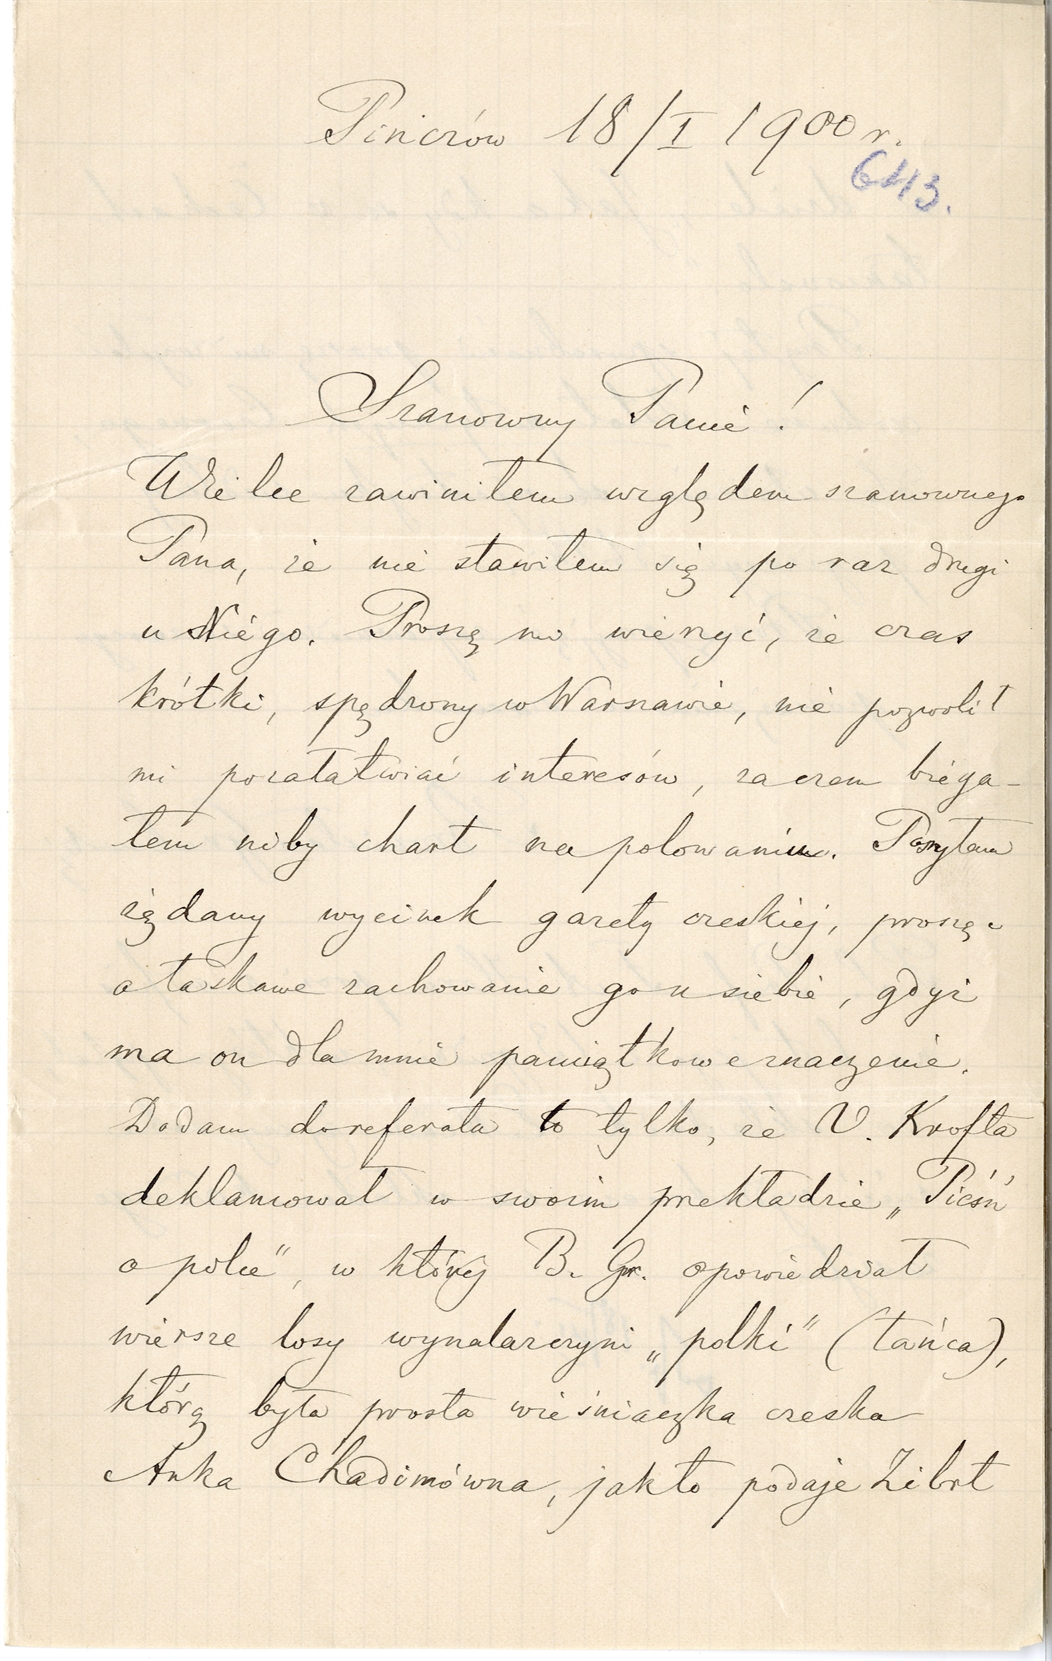 Pinczów 18/I 1900 r.
643.
Szanowny Panie!
Wielce zawiniłem względem szanownego
Pana, że nie stawiłem się po raz drugi
u Niego. Proszę mi wierzyć, że czas
krótki, spędzony w Warszawie, nie pozwolił
mi pozałatwiać interesów, za czem biega-
łem niby chart na polowaniu. Posyłam
żądany wycinek gazety czeskiej, proszę
o łaskawe zachowanie go u siebie, gdyż
ma on dla mnie pamiątkowe znaczenie.
Dodam do referatu to tylko, że V. Krofta
deklamował w swoim przekładzie „Pieśń
o polce", w której B. Gr. opowiedział
wiersze losy wynalazczyni „polki" (tańca),
którą była prosta wieśniaczka czeska
Anka Chadimówna, jak to podaje Zibrt